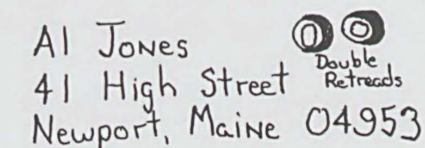 Al Jones
41 High Street
Newport, Maine 04953
Double
Retreads